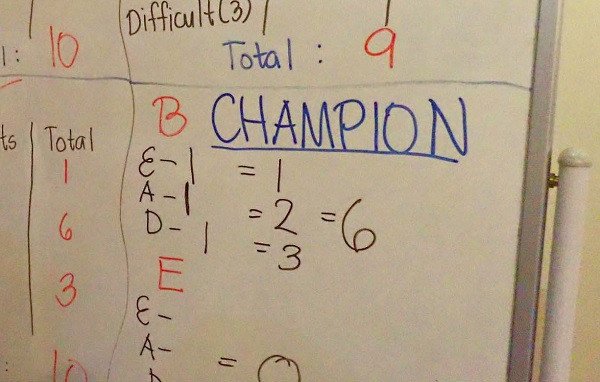 Difficult(3)
: 10
Total : 9
ts Total
1
6
3
: 10
B CHAMPION
E - 1 = 1
A - 1 = 2 = 6
D - 1 = 3
E
E -
A - =
D